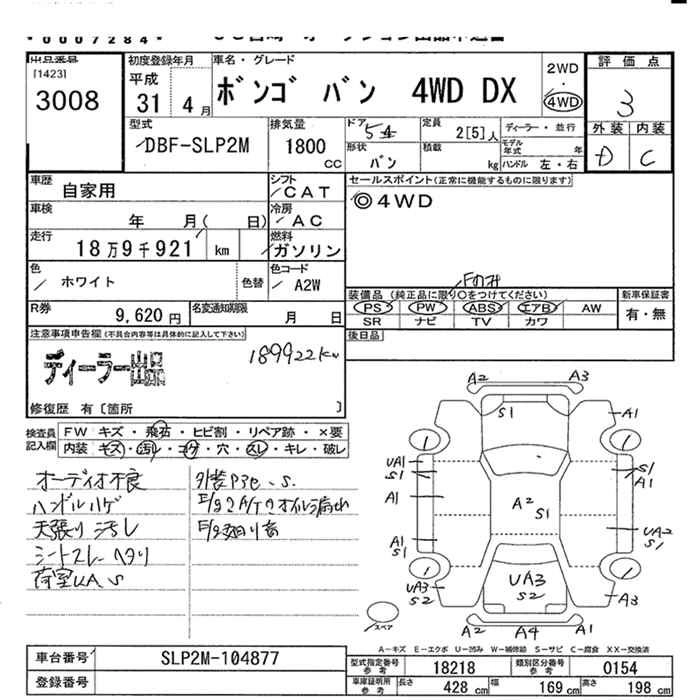 *0007284*
[1423]
3008
初度登録年月
平成
31年 4月
車名・グレード
ボンゴ バン 4WD DX
2WD
・
4WD
評価点
3
外装 内装
D C
型式
DBF-SLP2M
排気量
1800
CC
ドア
5
形状
バン
定員
2[5]人
積載
kg
ディーラー・並行
モデル年式 年
ハンドル 左・右
車歴
自家用
シフト
CAT
セールスポイント(正常に機能するものに限ります)
◎4WD
車検
年 月( 日)
冷房
AC
走行
18万9千921 km
燃料
ガソリン
色
ホワイト
色替
色コード
A2W
Fのみ
装備品 (純正品に限り〇をつけてください)
PS PW ABS エアB AW
SR ナビ TV カワ
新車保証書
有・無
R券
9,620円
名変通知期限
月 日
後日品
注意事項申告欄(不具合内容等は具体的に記入して下さい)
ディーラー出品
189922km
修復歴 有〔箇所 〕
検査員
記入欄
FW キズ・飛石・ヒビ割・リペア跡・×要
内装・キズ・汚レ・コゲ・穴・スレ・キレ・破レ
オーディオ不良
ハンドルハゲ
天張り汚れ
シートスレヘタリ
荷室UA、S
外装P3e、S
E/g2A/Tのオイル漏れ
A2 A3
S1
A1
1 1
UA1
S1
S1
A1
A1
A2
S1
A1
S1
UA2
S1
1 1
UA3
S2
UA3
S2
A3
A2 A4 A1
スペア
A-キズ E-エクボ U-凹み W-補修跡 S-サビ C-腐食 XX-交換済
車台番号
SLP2M-104877
登録番号
型式指定番号
参考
18218
類別区分番号
参考
0154
車庫証明用
参考
長さ 428 cm
幅 169 cm
高さ 198 cm